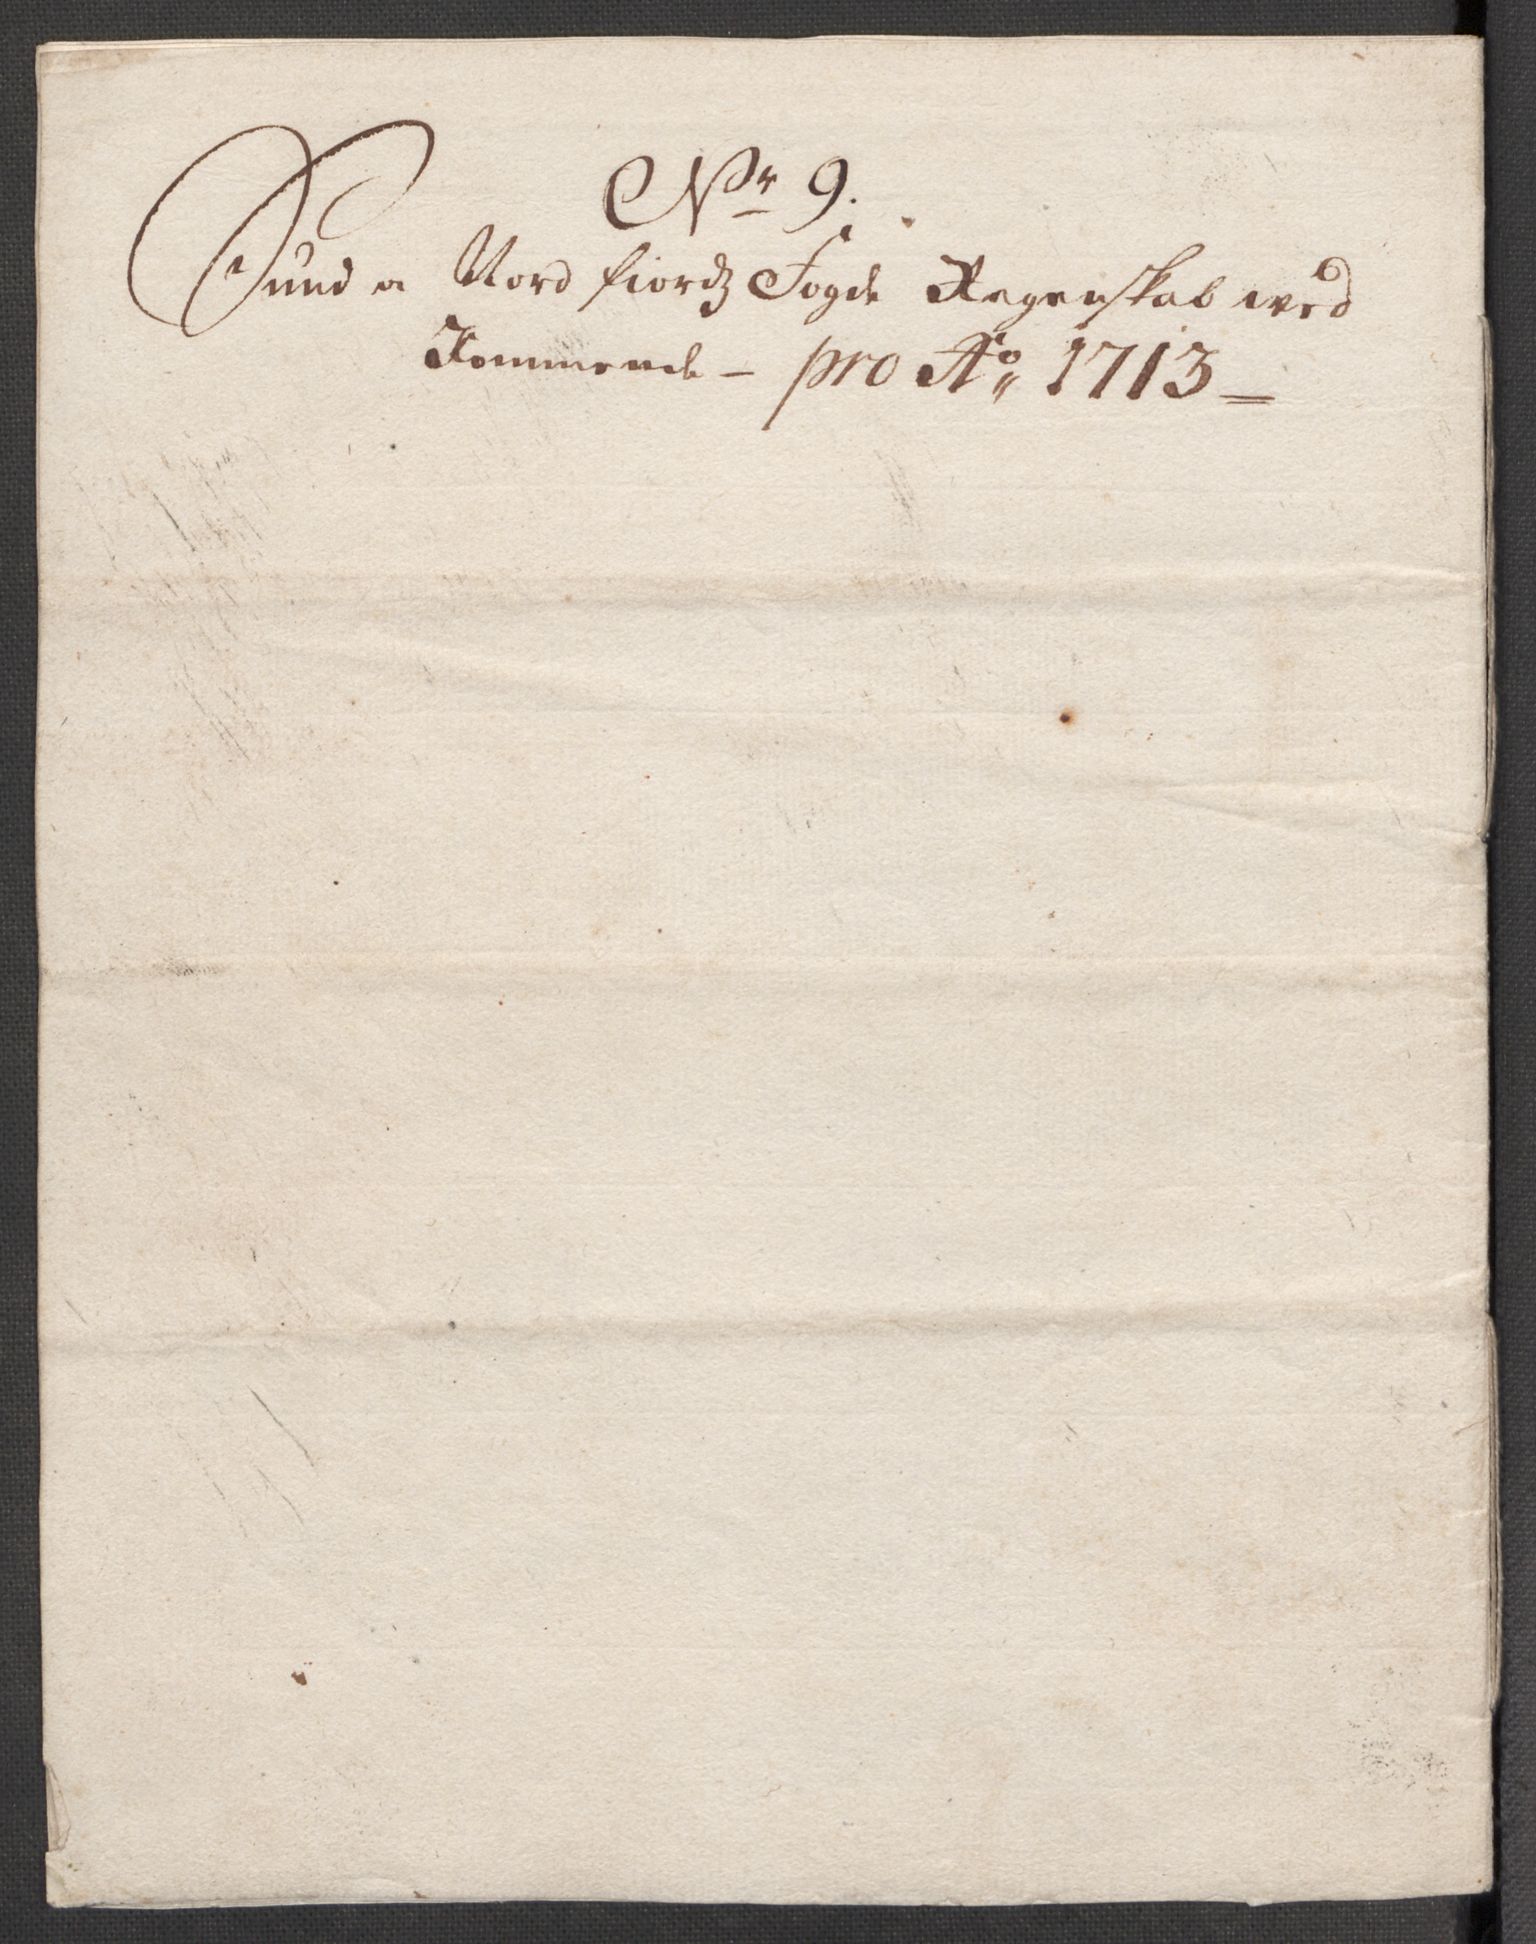 Nr 9.
Sund o Nord fiordz Fogde Regenskab ved
Kommende - pro Ao 1713